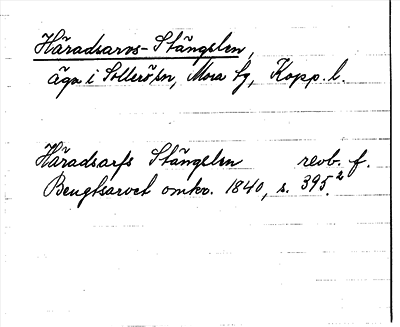 Häradsarvs-Stängslen,
äga i Sollerö sn, Mora tg, Kopp. l.
Häradsarfs Stängslen revb. f.
Bengtsarvet omkr. 1840, s. 395.²